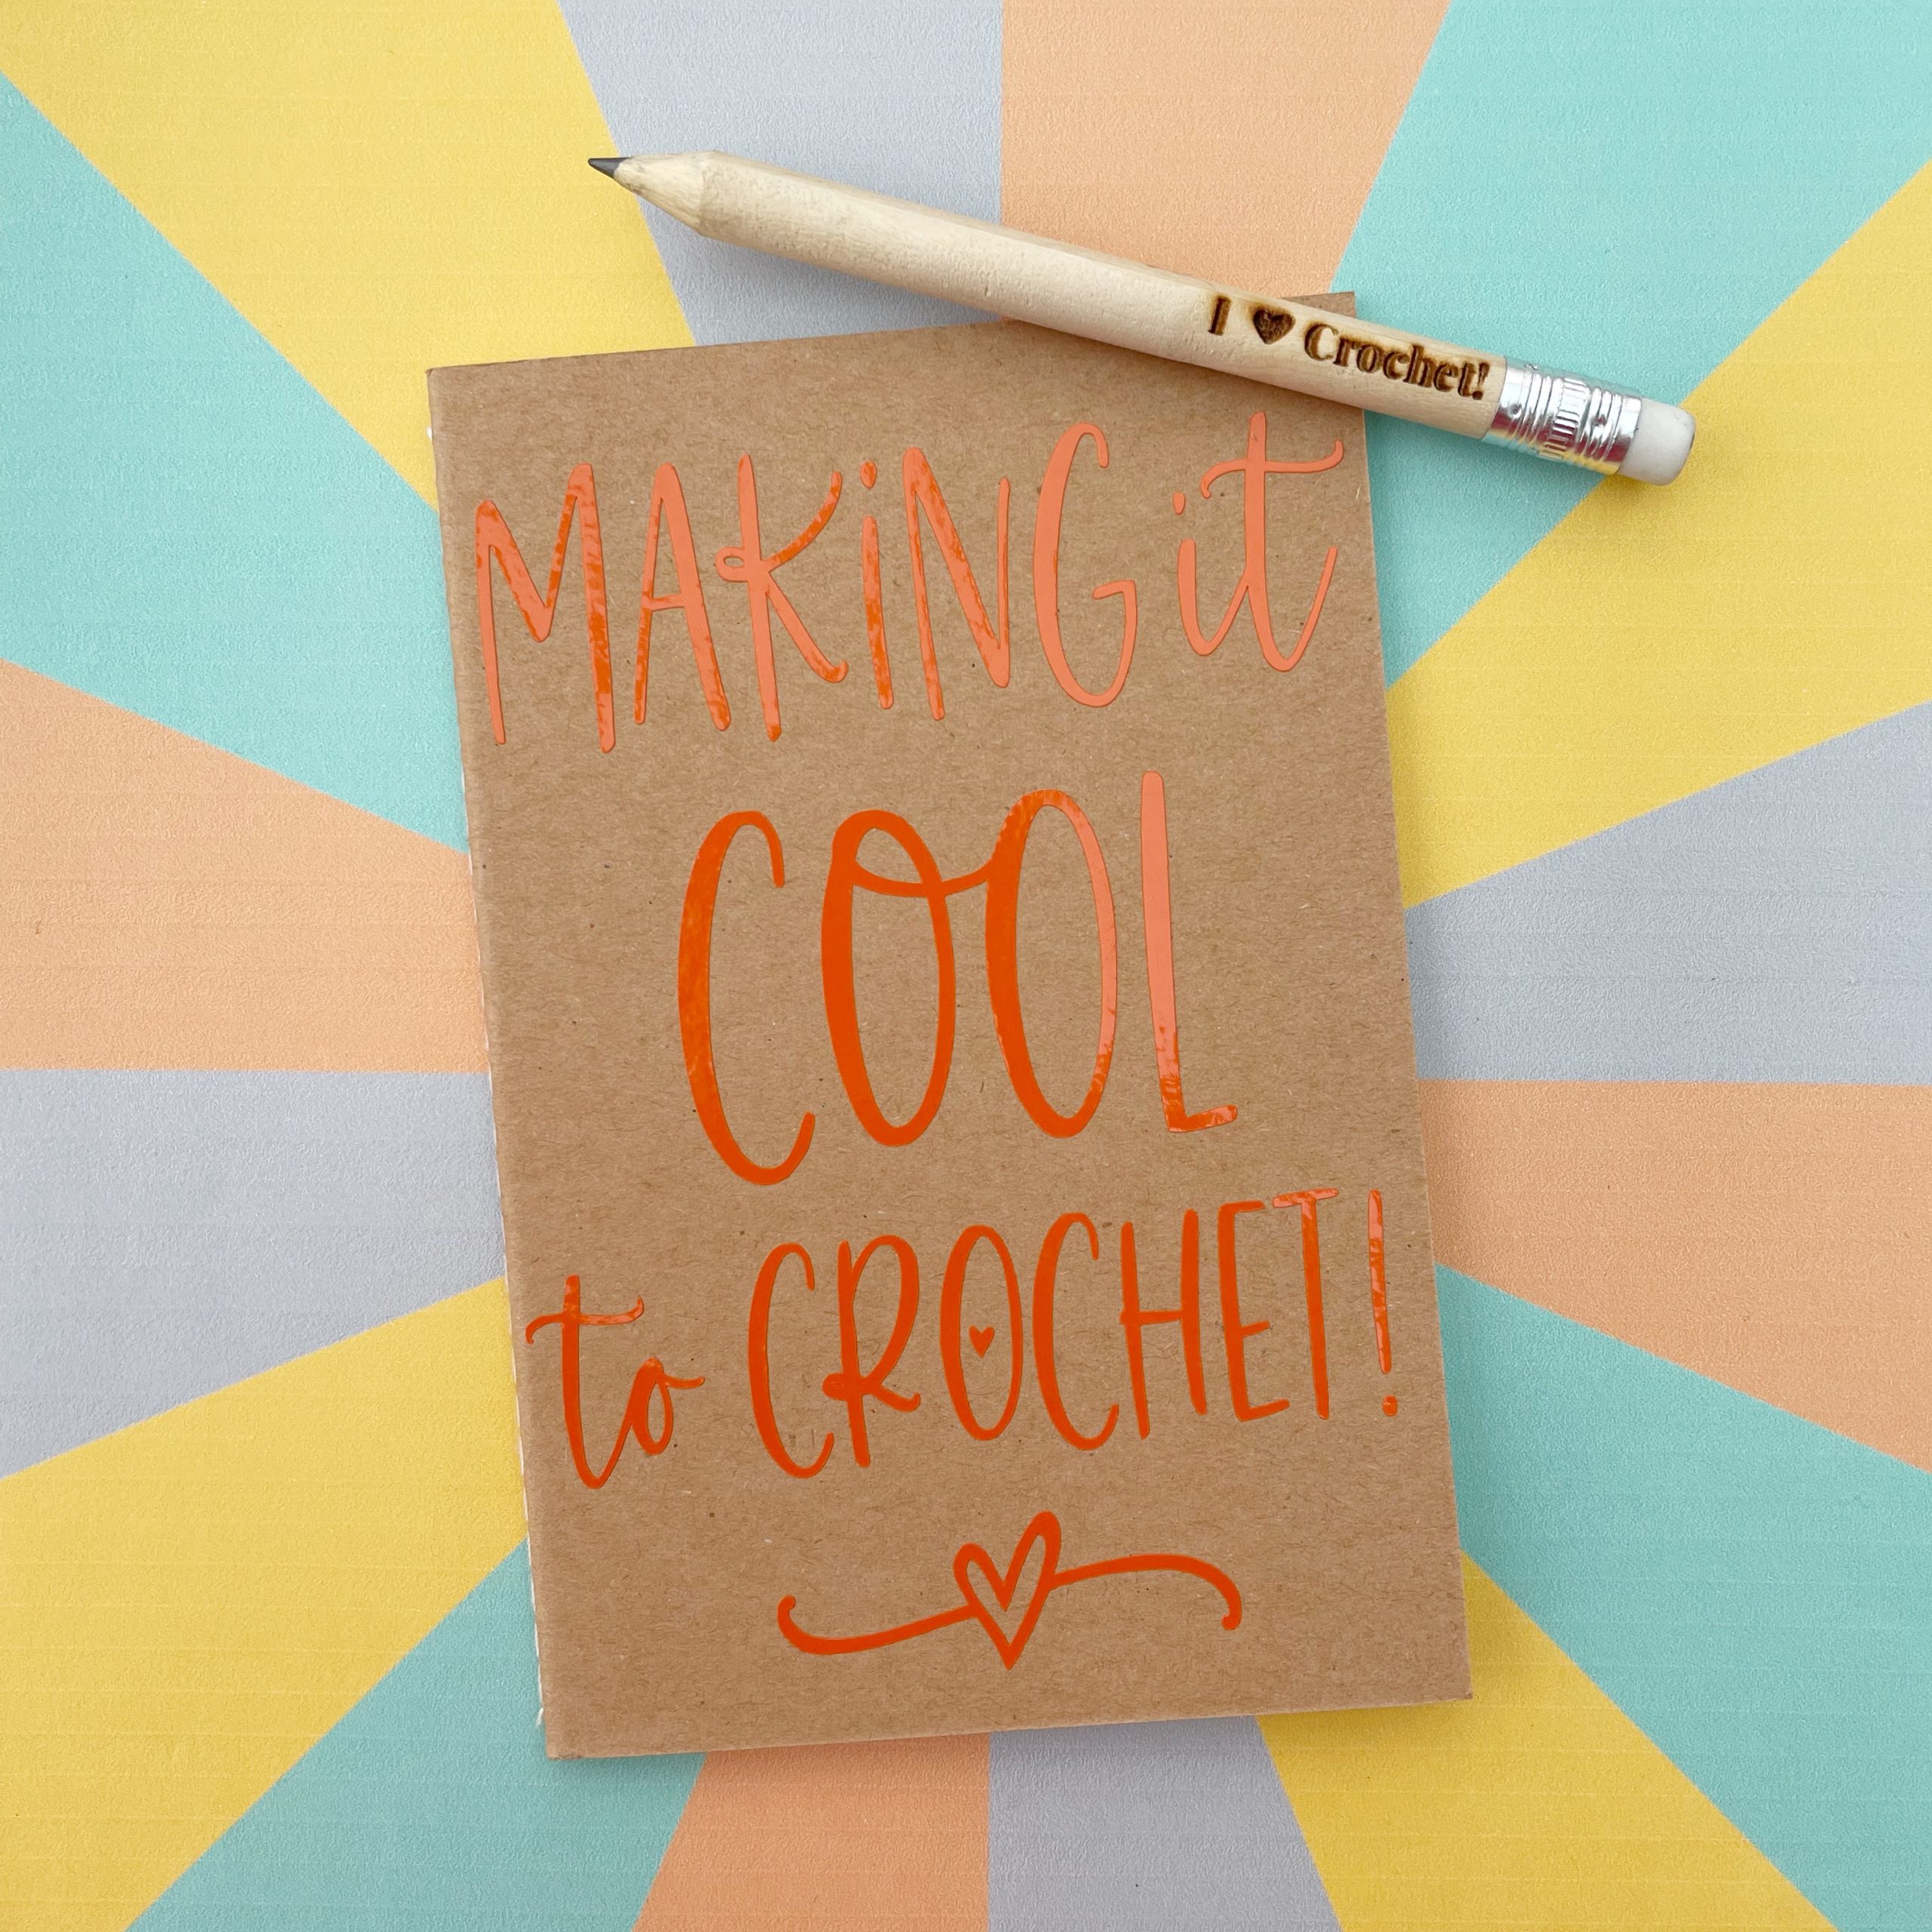 I ♥ Crochet!
MAKiNG it
COOL
to CROCHET!